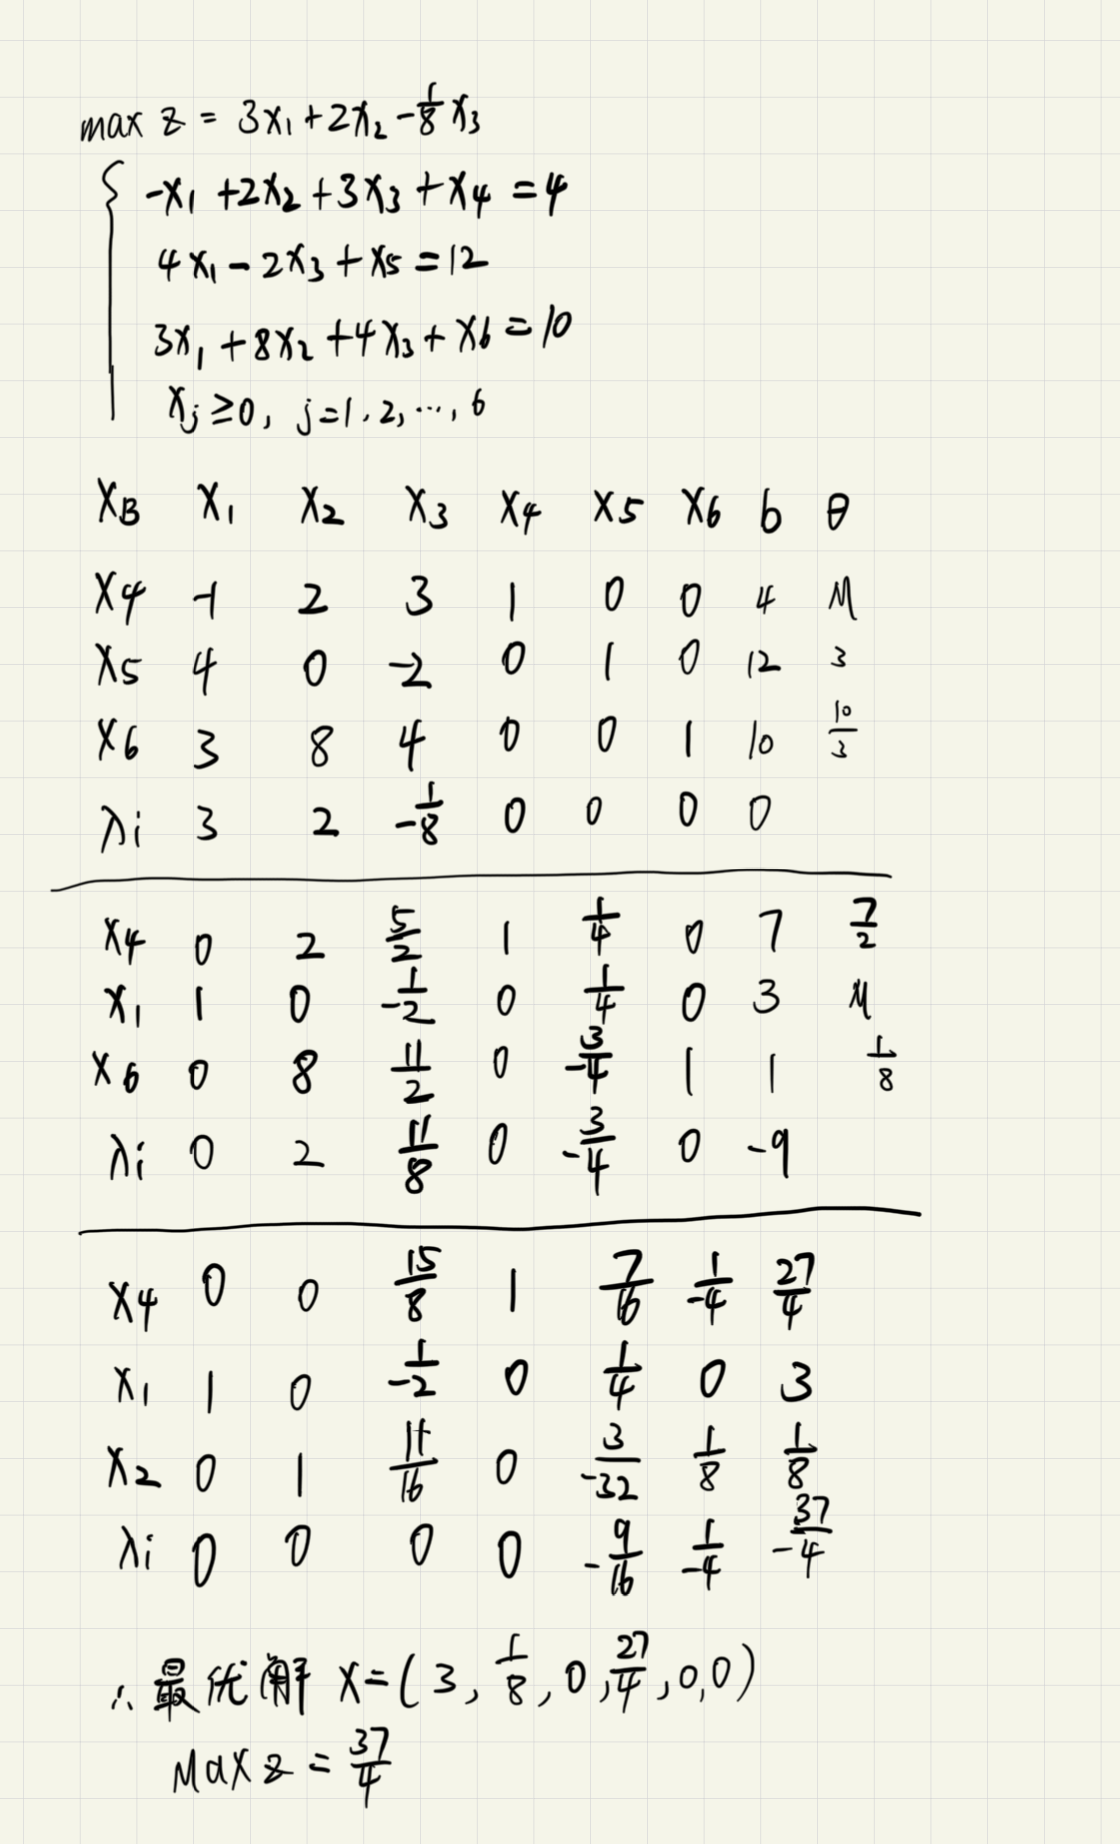 max z = 3x₁ + 2x₂ - 1/8 x₃
-x₁ + 2x₂ + 3x₃ + x₄ = 4
4x₁ - 2x₃ + x₅ = 12
3x₁ + 8x₂ + 4x₃ + x₆ = 10
xⱼ ≥ 0, j = 1, 2, ⋯, 6
X_B x₁ x₂ x₃ x₄ x₅ x₆ b θ
x₄ -1 2 3 1 0 0 4 M
x₅ 4 0 -2 0 1 0 12 3
x₆ 3 8 4 0 0 1 10 10/3
λi 3 2 -1/8 0 0 0 0
x₄ 0 2 5/2 1 1/4 0 7 7/2
x₁ 1 0 -1/2 0 1/4 0 3 M
x₆ 0 8 11/2 0 -3/4 1 1 1/8
λi 0 2 11/8 0 -3/4 0 -9
x₄ 0 0 15/8 1 7/16 -1/4 27/4
x₁ 1 0 -1/2 0 1/4 0 3
x₂ 0 1 11/16 0 -3/32 1/8 1/8
λi 0 0 0 0 -9/16 -1/4 -37/4
∴ 最优解 X = (3, 1/8, 0, 27/4, 0, 0)
Max z = 37/4